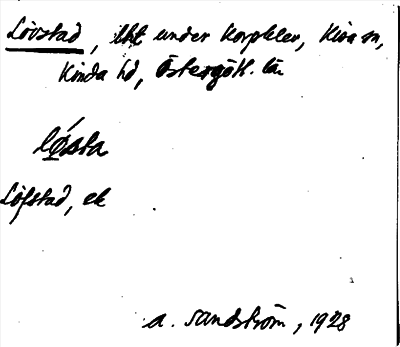 Lövstad, lht under Korpklev, Kisa sn,
Kinda hd, Östergötl. län
lǿsta
Löfstad, ek
A. Sandström, 1928